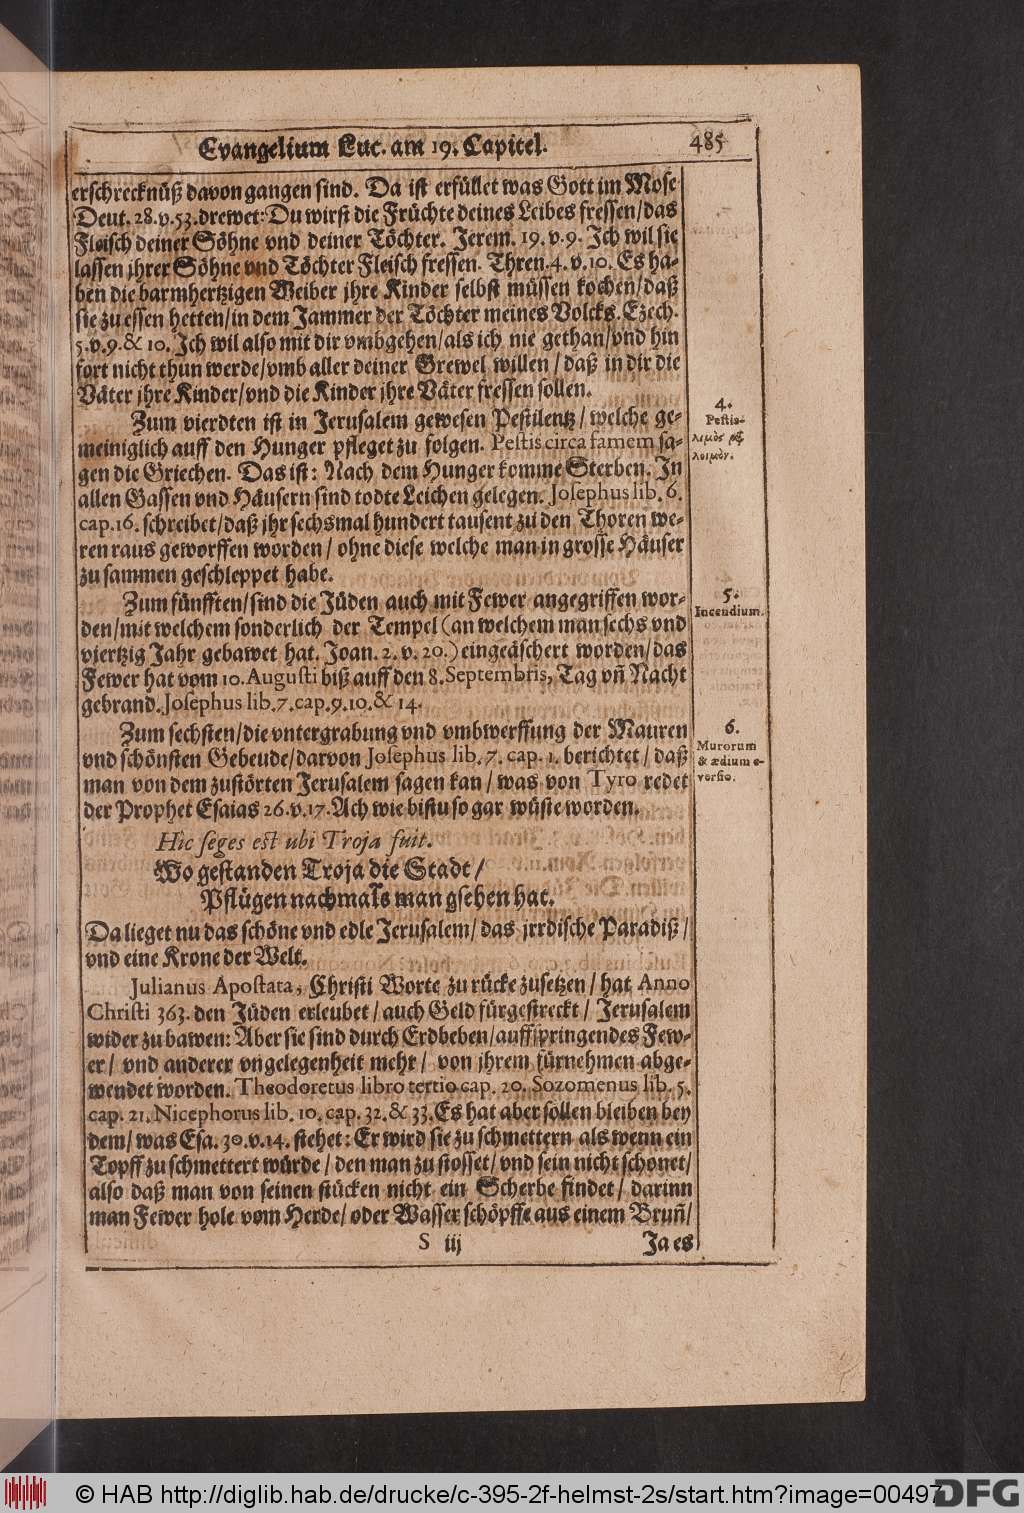 Evangelium Luc. am 19. Capitel. 485
erschrecknüß davon gangen sind. Da ist erfüllet was Gott im Mose
Deut. 28. v. 53. drewet: Du wirst die Früchte deines Leibes fressen/das
Fleisch deiner Söhne vnd deiner Töchter. Jerem. 19. v. 9. Ich wil sie
lassen jhrer Söhne vnd Töchter Fleisch fressen. Thren. 4. v. 10. Es ha-
ben die barmhertzigen Weiber jhre Kinder selbst müssen kochen/daß
sie zu essen hetten/in dem Jammer der Töchter meines Volcks. Ezech.
5. v. 9. & 10. Ich wil also mit dir vmbgehen/als ich nie gethan/vnd hin
fort nicht thun werde/vmb aller deiner Grewel willen/daß in dir die
Väter jhre Kinder/vnd die Kinder jhre Väter fressen sollen.
Zum vierdten ist in Jerusalem gewesen Pestilentz/welche ge-
meiniglich auff den Hunger pfleget zu folgen. Pestis circa famem sa-
gen die Griechen. Das ist: Nach dem Hunger komme Sterben. In
allen Gassen vnd Häusern sind todte Leichen gelegen. Josephus lib. 6.
cap. 16. schreibet/daß jhr sechsmal hundert tausent zu den Thoren we-
ren raus geworffen worden/ohne diese welche man in grosse Häuser
zu sammen geschleppet habe.
4.
Pestis
λιμὸς μεξ
λοιμόν.
Zum fünfften/sind die Jüden auch mit Fewer angegriffen wor-
den/mit welchem sonderlich der Tempel (an welchem man sechs vnd
viertzig Jahr gebawet hat. Joan. 2. v. 20.) eingeäschert worden/das
Fewer hat vom 10. Augusti biß auff den 8. Septembris, Tag vñ Nacht
gebrand. Josephus lib. 7. cap. 9. 10. & 14.
5.
Incendium.
Zum sechsten/die vntergrabung vnd vmbwerffung der Mauren
vnd schönsten Gebeude/darvon Josephus lib. 7. cap. 1. berichtet/daß
man von dem zustörten Jerusalem sagen kan/was von Tyro redet
der Prophet Esaias 26. v. 17. Ach wie bistu so gar wüste worden.
6.
Murorum
& ædium e-
versio.
Hic seges est ubi Troja fuit.
Wo gestanden Troja die Stadt/
Pflügen nachmals man gsehen hat.
Da lieget nu das schöne vnd edle Jerusalem/das jrrdische Paradiß/
vnd eine Krone der Welt.
Julianus Apostata, Christi Worte zu rücke zusetzen/hat Anno
Christi 363. den Jüden erleubet/auch Geld fürgestreckt/Jerusalem
wider zu bawen: Aber sie sind durch Erdbeben/auffspringendes Few-
er/vnd anderer vngelegenheit mehr/von jhrem fürnehmen abge-
wendet worden. Theodoretus libro tertio cap. 20. Sozomenus lib. 5.
cap. 21. Nicephorus lib. 10. cap. 32. & 33. Es hat aber sollen bleiben bey
dem/was Esa. 30. v. 14. stehet: Er wird sie zu schmettern als wenn ein
Topff zu schmettert würde/den man zu stosset/vnd sein nicht schonet/
also daß man von seinen stücken nicht ein Scherbe findet/darinn
man Fewer hole vom Herde/oder Wasser schöpffe aus einem Bruñ/
S iij Ja es
© HAB http://diglib.hab.de/drucke/c-395-2f-helmst-2s/start.htm?image=00497
DFG